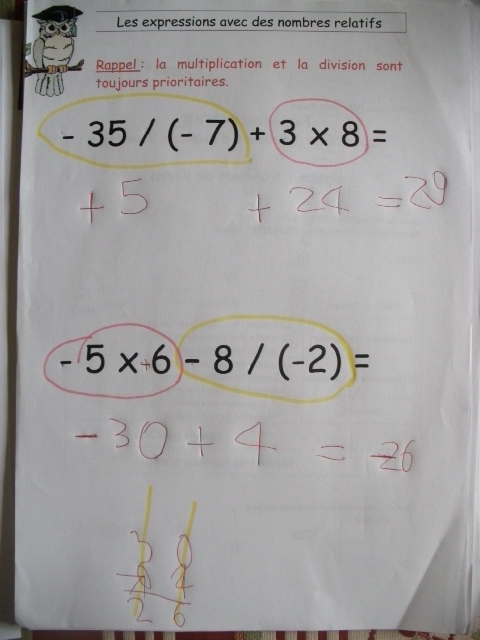 Les expressions avec des nombres relatifs
Rappel : la multiplication et la division sont
toujours prioritaires.
- 35 / (- 7) + 3 x 8 =
+ 5 + 24 = 29
- 5 x + 6 - 8 / (-2) =
- 30 + 4 = -26